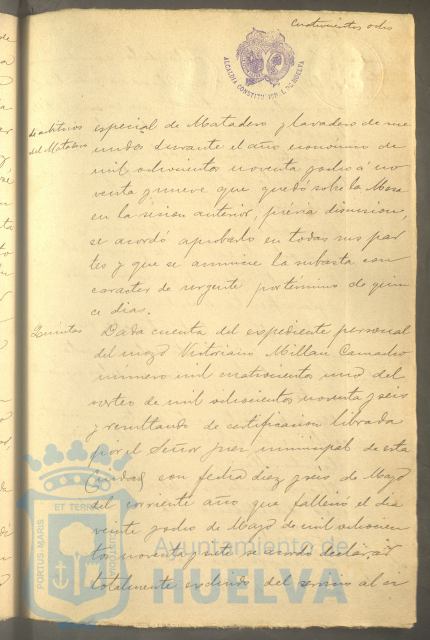 Cuatrocientos ocho
ALCALDIA CONSTITUCIONAL DE HUELVA
de arbitrios
del Matadero
especial de Matadero y lavadero de me
nudos durante el año economico de
mil ochocientos noventa y ocho á no
venta y nueve que quedó sobre la Mesa
en la sesion anterior, previa discusion,
se acordó aprobarlo en todas sus par
tes y que se anuncie la subasta con
caracter de urgente por término de quin
ce dias.
Quintas
Dada cuenta del expediente personal
del mozo Victoriano Millan Camacho
número mil cuatrocientos uno del
sorteo de mil ochocientos noventa y seis
y resultando de certificacion librada
por el Señor Juez municipal de esta
Ciudad con fecha diez y seis de Mayo
del corriente año que falleció el dia
veinte y ocho de Mayo de mil ochocien
tos noventa y siete se acordó declarar
totalmente excluido del servicio al ex
PORTUS MARIS ET TERRAE
Ayuntamiento de
HUELVA